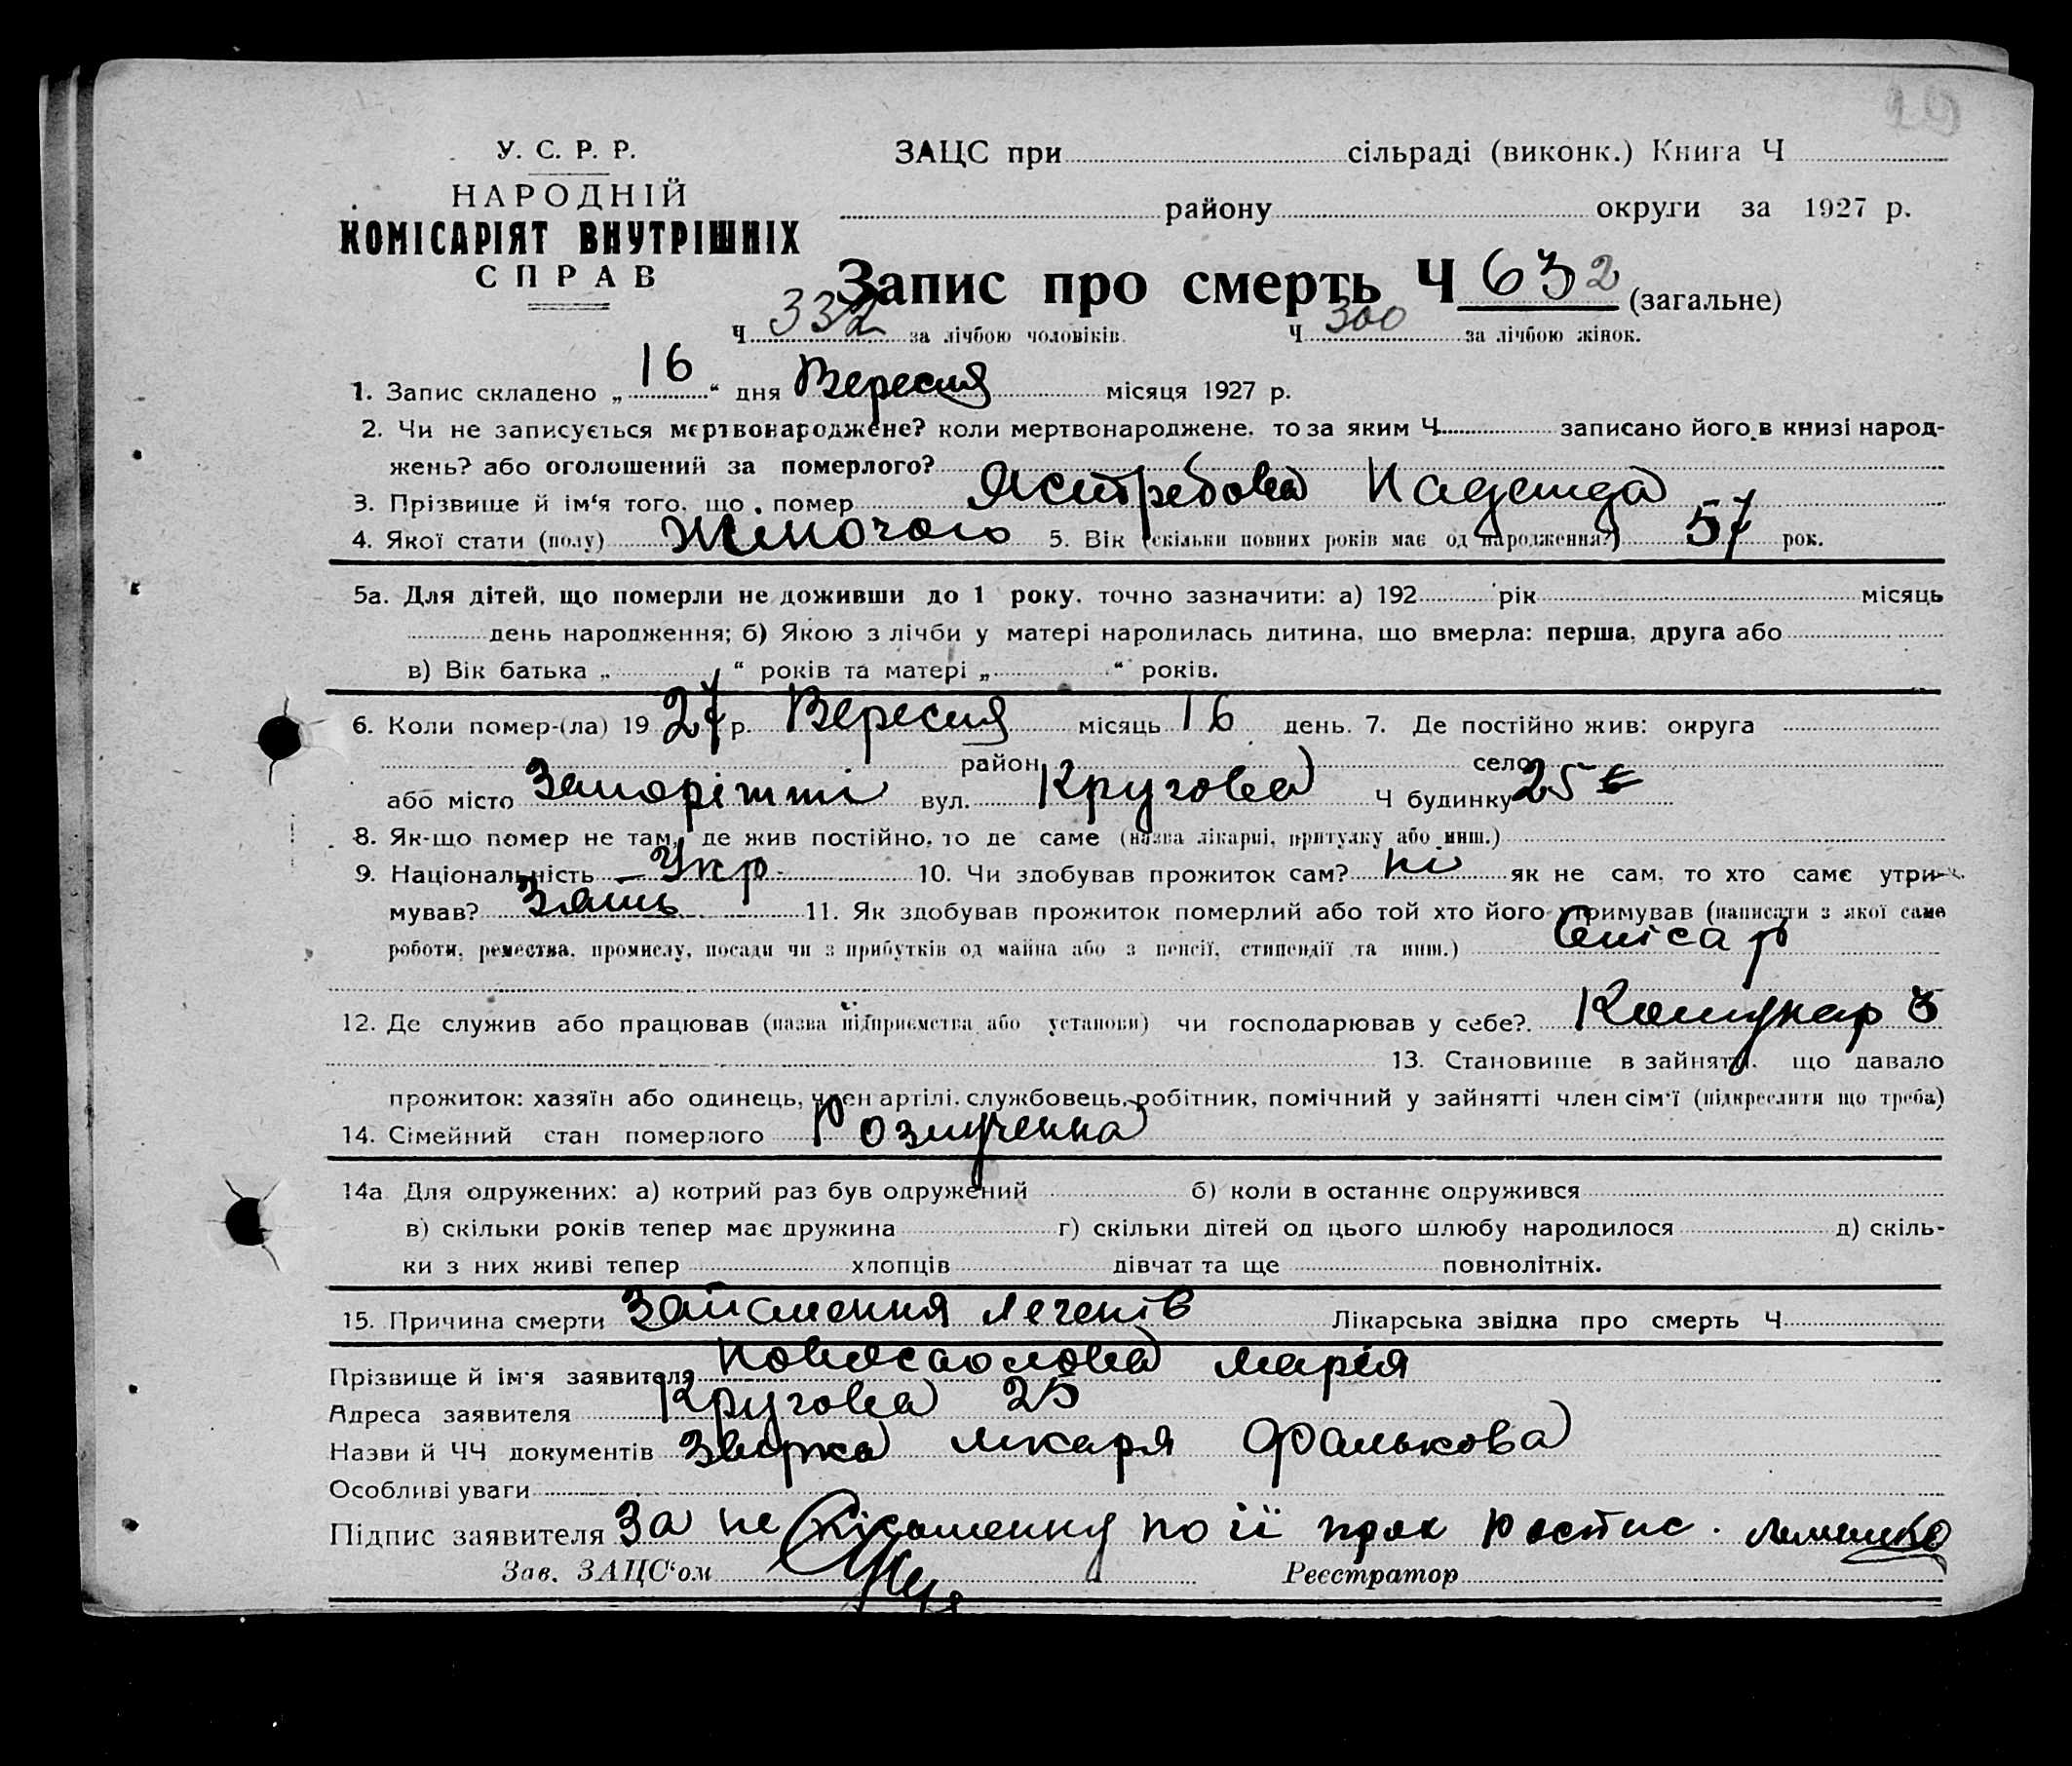 20
У. С. Р. Р.
НАРОДНІЙ
КОМІСАРІЯТ ВНУТРІШНІХ
СПРАВ
ЗАЦС при сільраді (виконк.) Книга Ч
району округи за 1927 р.
Запис про смерть Ч 632 (загальне)
Ч 332 за лічбою чоловіків. Ч 300 за лічбою жінок.
1. Запис складено „16“ дня Вересня місяця 1927 р.
2. Чи не записується мертвонароджене? коли мертвонароджене, то за яким Ч записано його в книзі народ-
жень? або оголошений за померлого?
3. Прізвище й ім‘я того, що помер Ястребова Надежда
4. Якої стати (полу) Жіночого 5. Вік (скільки повних років має од народження?) 57 рок.
5а. Для дітей, що померли не доживши до 1 року, точно зазначити: а) 192 рік місяць
день народження; б) Якою з лічби у матері народилась дитина, що вмерла: перша, друга або
в) Вік батька „ “ років та матері „ “ років.
6. Коли помер-(ла) 1927 р. Вересня місяць 16 день. 7. Де постійно жив: округа
район село
або місто Запоріжжі вул. Кругова Ч будинку 25
8. Як-що помер не там, де жив постійно, то де саме (назва лікарні, притулку або инш.)
9. Національність Укр. 10. Чи здобував прожиток сам? ні як не сам, то хто саме утри-
мував? Зять 11. Як здобував прожиток померлий або той хто його утримував (написати з якої саме
роботи, ремества, промислу, посади чи з прибутків од майна або з пенсії, стипендії та инш.) Слісар
12. Де служив або працював (назва підприємства або установи) чи господарював у себе? Комунар З
13. Становище в зайнятті, що давало
прожиток: хазяїн або одинець, член артілі, службовець, робітник, помічний у зайнятті член сім‘ї (підкреслити що треба)
14. Сімейний стан померлого Розлученна
14а Для одружених: а) котрий раз був одружений б) коли в останнє одружився
в) скільки років тепер має дружина г) скільки дітей од цього шлюбу народилося д) скіль-
ки з них живі тепер хлопців дівчат та ще повнолітніх.
15. Причина смерти Запалення легенів Лікарська звідка про смерть Ч
Прізвище й ім‘я заявителя Марія
Адреса заявителя Кругова 25
Назви й ЧЧ документів лікаря Фалькова
Особливі уваги
Підпис заявителя За не по її
Зав. ЗАЦС‘ом Реєстратор